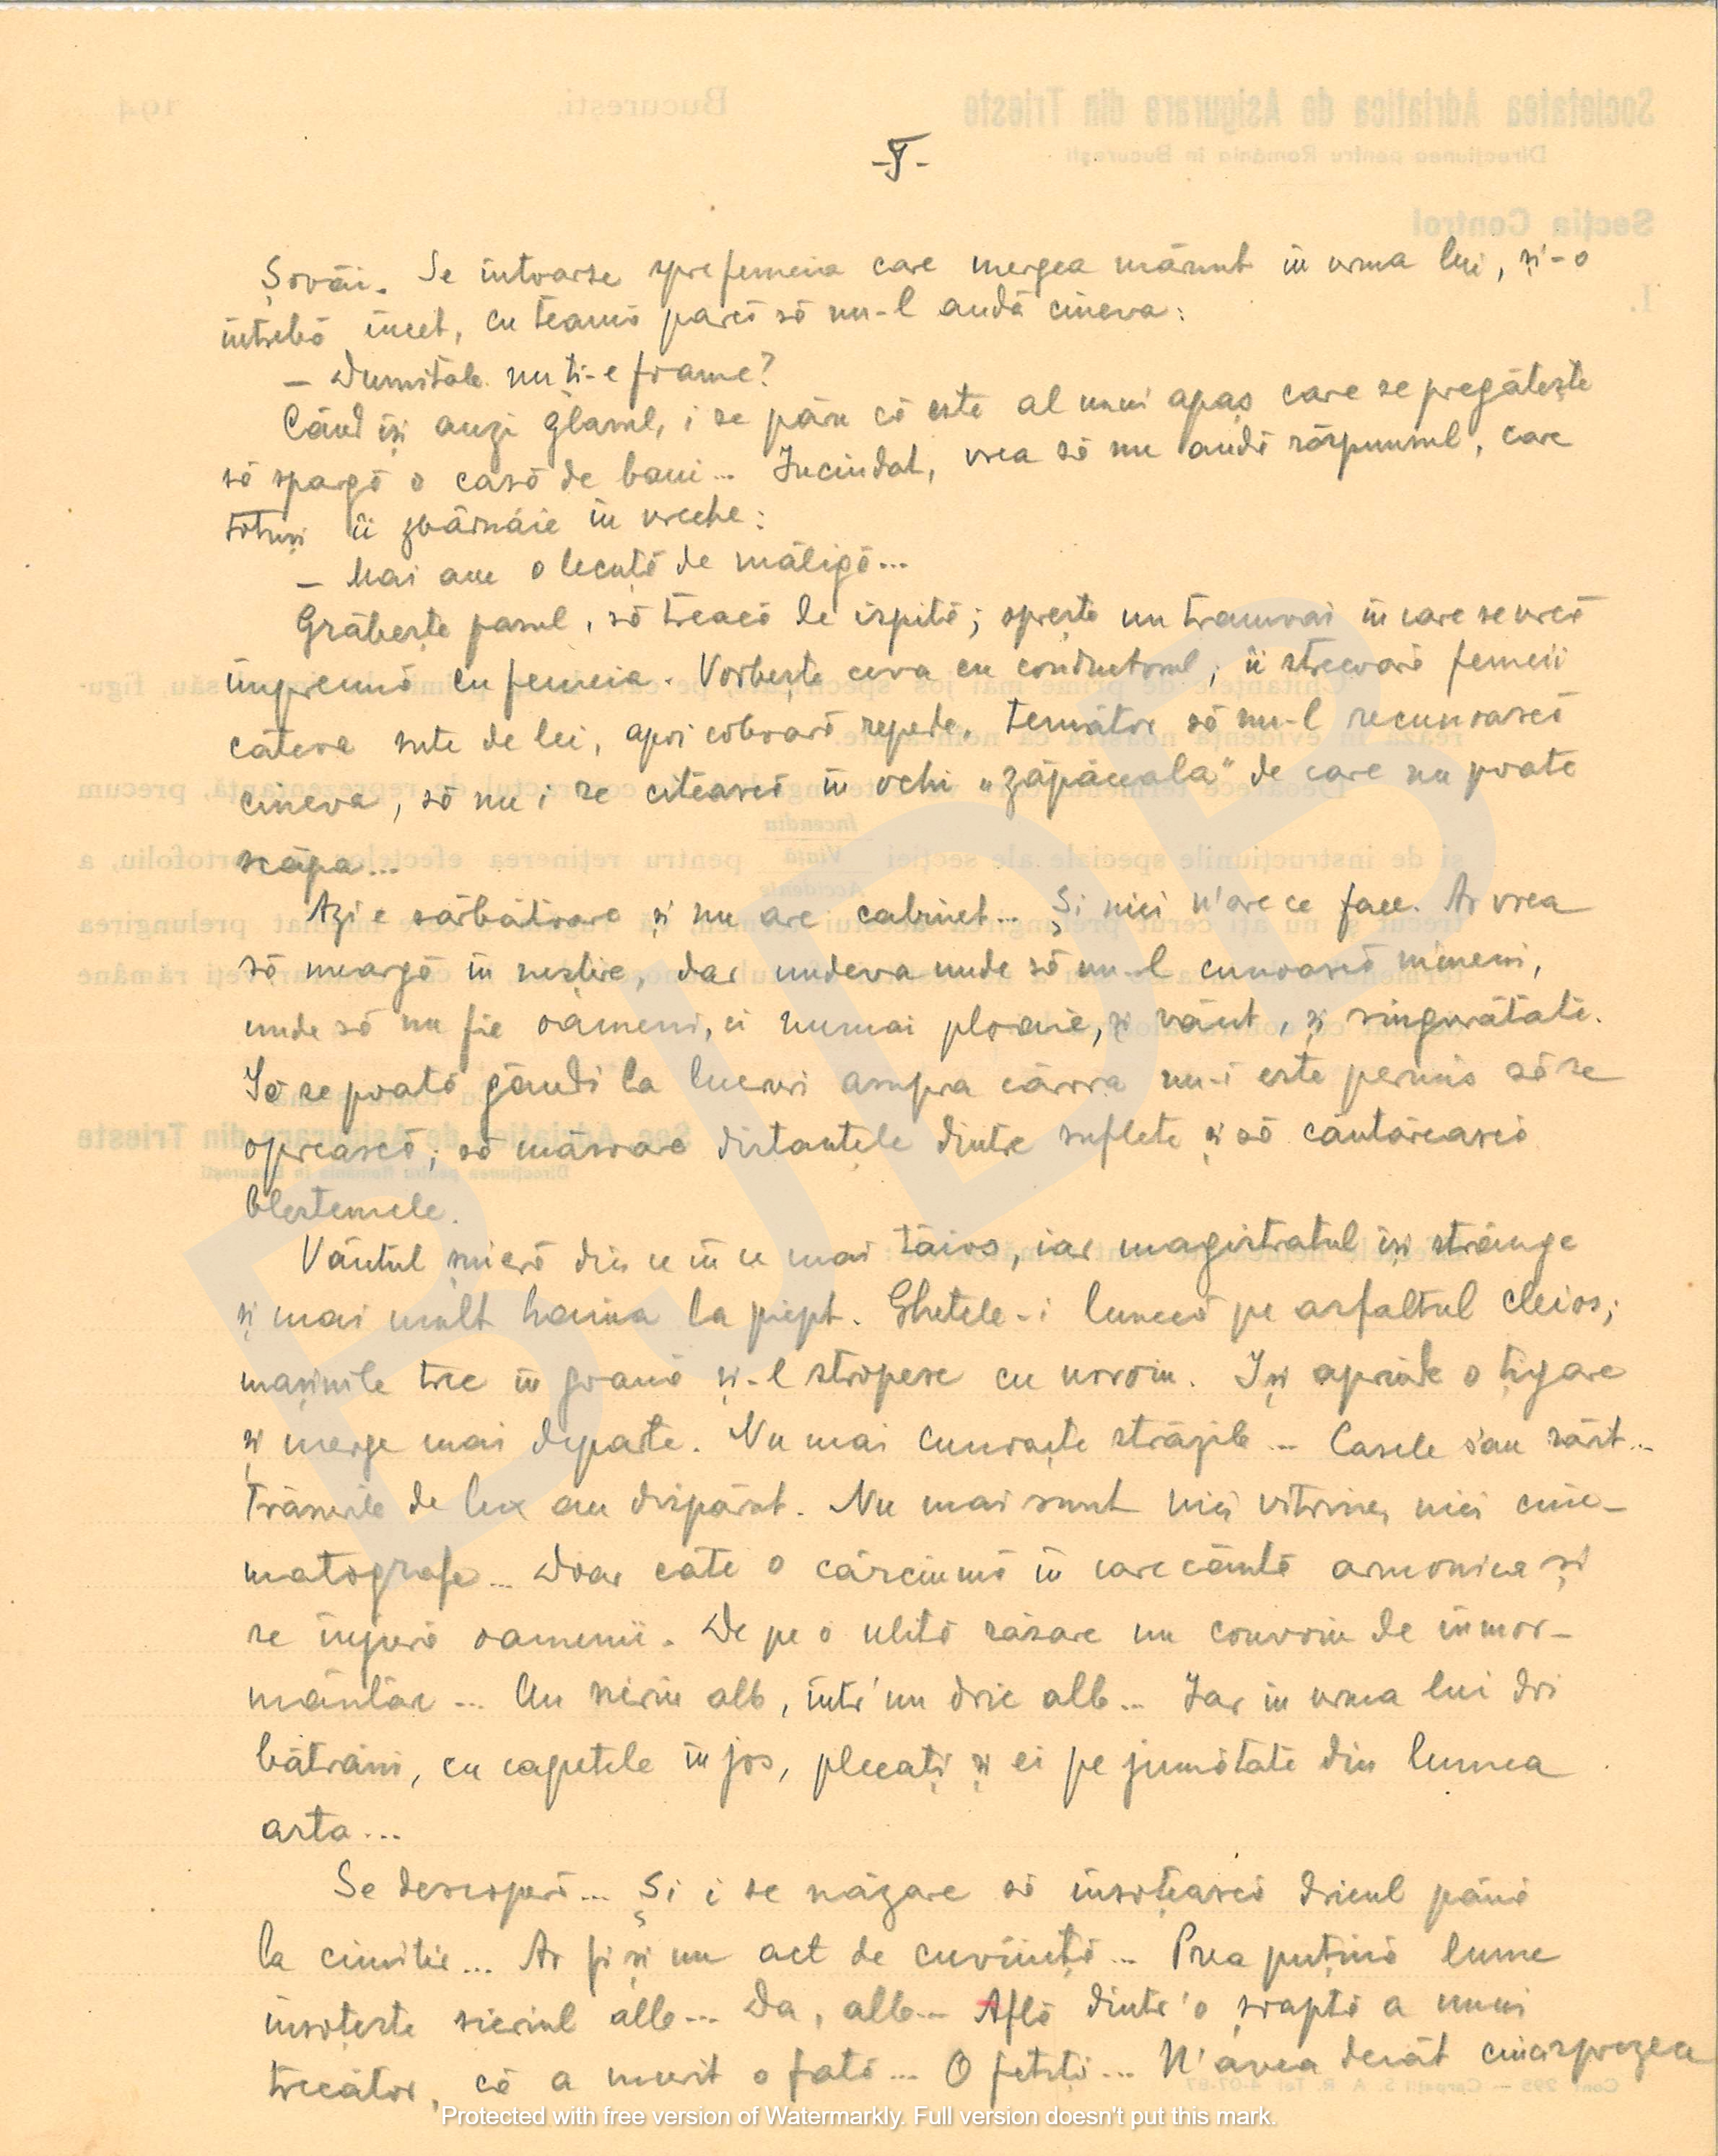 -I-
Șovăi. Se întoarse spre femeia care mergea mărunt în urma lui, și-o
întrebă încet, cu teamă parcă să nu-l audă cineva:
— Dumitale nu ți-e foame?
Când își auzi glasul, i se păru că este al unui apaș care se pregătește
să spargă o casă de bani... Inciudat, vrea să nu audă răspunsul, care
totuși îi zbârnâie în ureche:
— Mai am o lecuță de măligă...
Grăbește pasul, să treacă de ispită; oprește un tramvai în care se urcă
împreună cu femeia. Vorbește ceva cu conductorul; îi strecoară femeii
câteva sute de lei, apoi coboară repede, temător să nu-l recunoască
cineva, să nu i se citească în ochi „zăpăceala" de care nu poate
scăpa...
Azi e sărbătoare și nu are cabinet... Și nici n'are ce face. Ar vrea
să meargă în neștire, dar undeva unde să nu-l cunoască nimeni,
unde să nu fie oameni, ci numai ploaie, și vânt, și singurătate.
Să se poată gândi la lucruri asupra cărora nu-i este permis să se
oprească; să măsoare distanțele dintre suflete și să cântărească
blestemele.
Vântul șueră din ce în ce mai tăios, iar magistratul își strânge
și mai mult haina la piept. Ghetele-i lunecă pe asfaltul cleios;
mașinile trec în goană și-l stropesc cu noroiu. Iși aprinde o țigare
și merge mai departe. Nu mai cunoaște străzile... Casele s'au rărit...
Trăsurile de lux au dispărut. Nu mai sunt nici vitrine, nici cine-
matografe... Doar câte o cârciumă în care cântă armonica și
se înjură oamenii. De pe o uliță răsare un convoiu de înmor-
mântare... Un sicriu alb, într'un dric alb... Iar în urma lui doi
bătrâni, cu capetele în jos, plecați și ei pe jumătate din lumea
asta...
Se descoperă... Și i se năzare să însoțească dricul până
la cimitir... Ar fi și un act de cuviință... Prea puțină lume
însoțește sicriul alb... Da, alb... Află dintr'o șoaptă a unui
trecător, că a murit o fată... O fetiță... N'avea decât cincisprezece
Protected with free version of Watermarkly. Full version doesn't put this mark.
BJDB
Societatea Adriatica de Asigurare din Trieste
București, 194
Direcțiunea pentru România în București
Secția Control